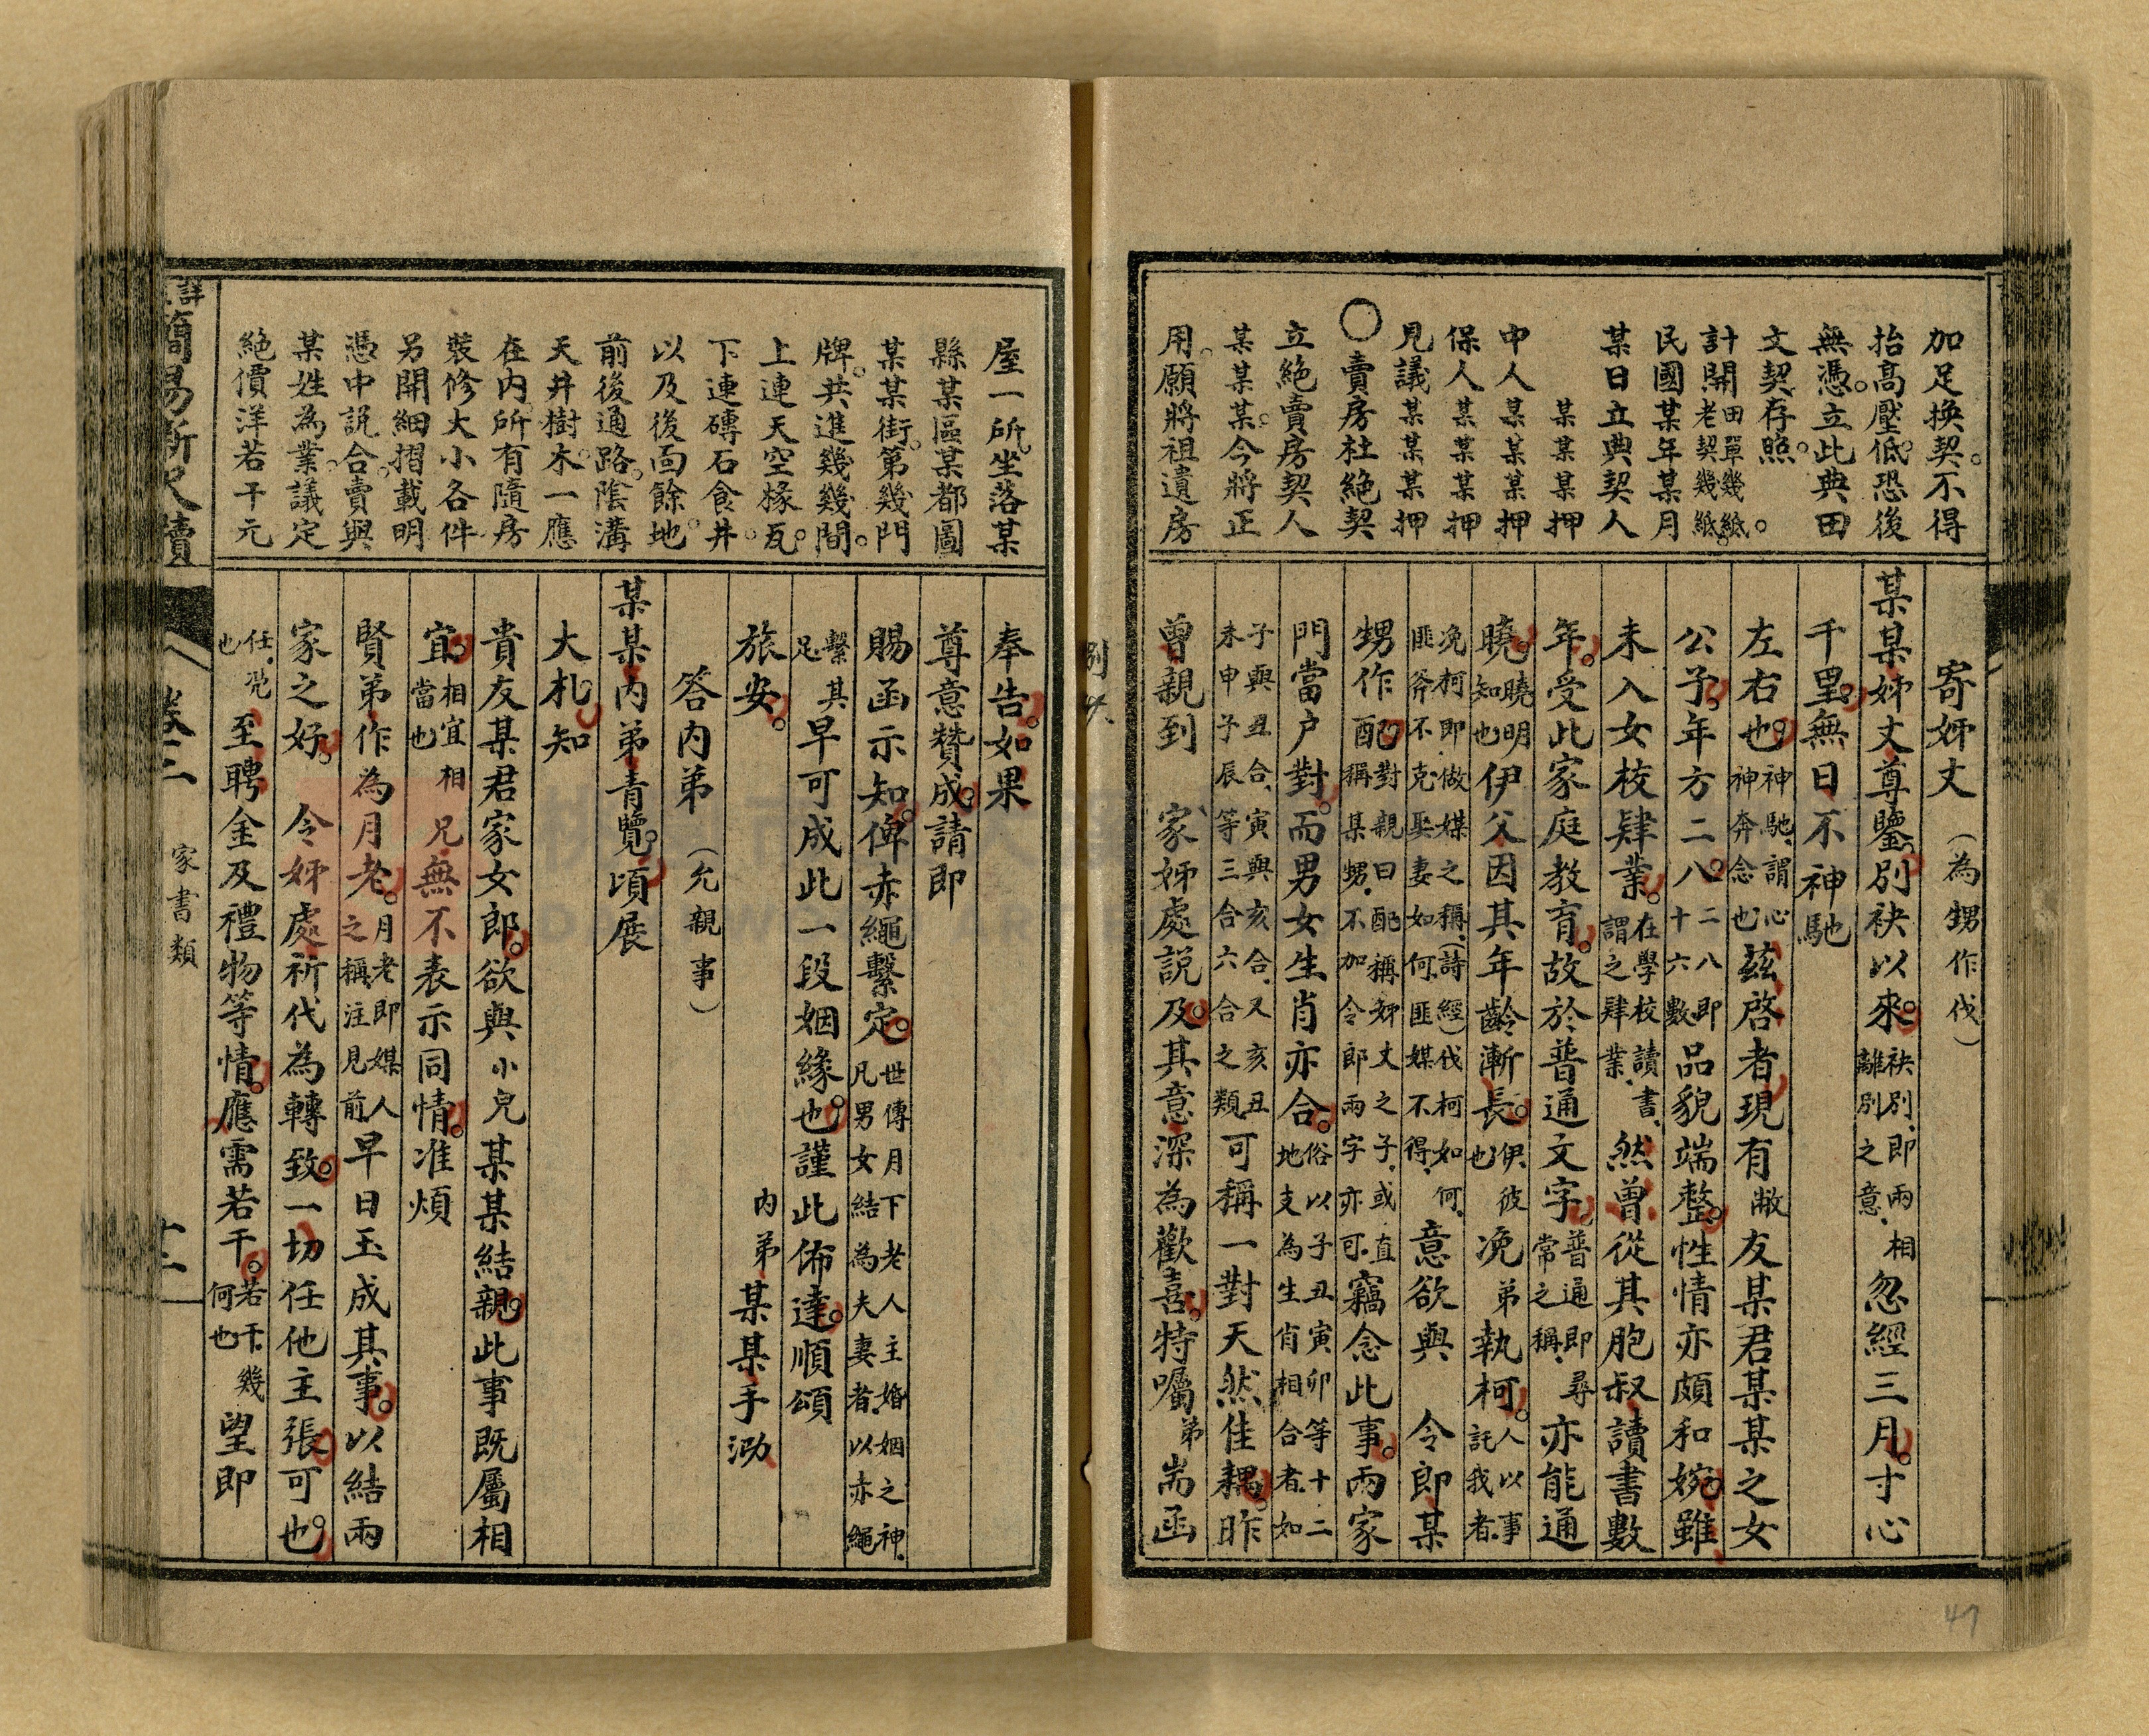 加足換契。不得
抬高壓低。恐後
無憑。立此典田
文契存照。
計開田單幾紙。老契幾紙。
民國某年某月
某日立典契人
某某某押
中人某某某押
保人某某某押
見議某某某押
○賣房杜絕契
立絕賣房契人
某某某。今將正
用。願將祖遺房
寄姊丈（為甥作伐）
某某姊丈尊鑒。別袂以來。袂別、即兩相離別之意、忽經三月。寸心
千里。無日不神馳
左右也。神馳、謂心神奔念也、茲啓者。現有敝友某君某某之女
公子。年方二八。二八即十六數品貌端整。性情亦頗和婉。雖
未入女校肄業。在學校讀書、謂之肄業、然曾從其胞叔讀書數
年。受此家庭教育。故於普通文字。普通即尋常之稱、亦能通
曉。曉明知也伊父因其年齡漸長。伊、彼也浼弟執柯。人以事託我者、
浼柯即做媒之稱、（詩經）伐柯如何、匪斧不克、娶妻如何、匪媒不得、意欲與 令郎某
甥作配。對親曰配稱姊丈之子、或直稱某甥、不加令郎兩字亦可、竊念此事。兩家
門當户對。而男女生肖亦合。俗以子丑寅卯等十二地支為生肖相合者、如
子與丑合、寅與亥合、又亥丑未申子子辰等三合六合之類可稱一對天然佳耦。昨
曾親到 家姊處説及。其意深為歡喜。特囑弟耑函
奉告。如果
尊意贊成。請即
賜函示知。俾赤繩繫定。世傳月下老人主婚姻之神、凡男女結為夫妻者、以赤繩
繫其足、早可成此一段姻緣也。謹此佈達。順頌
旅安。 内弟某某手泐
答内弟（允親事）
某某内弟青覽。頃展
大札。知
貴友某君家女郎。欲與小兒某某結親。此事既屬相
宜。相宜相當也兄無不表示同情。准煩
賢弟作為月老。月老即媒人之稱注見前早日玉成其事。以結兩
家之好。 令姊處祈代為轉致。一切任他主張可也。
任、凴也至聘金及禮物等情。應需若干。若干、幾何也望即
屋一所。坐落某
縣某區某都圖
某某街。第幾門
牌。共進幾幾間。
上連天空椽瓦。
下連磚石食井。
以及後面餘地。
前後通路。陰溝
天井樹木。一應
在内所有隨房
裝修大小各件
另開細摺載明
憑中説合。賣與
某姓為業。議定
絕價洋若干元
簡易新尺牘
卷二
家書類
十二
47